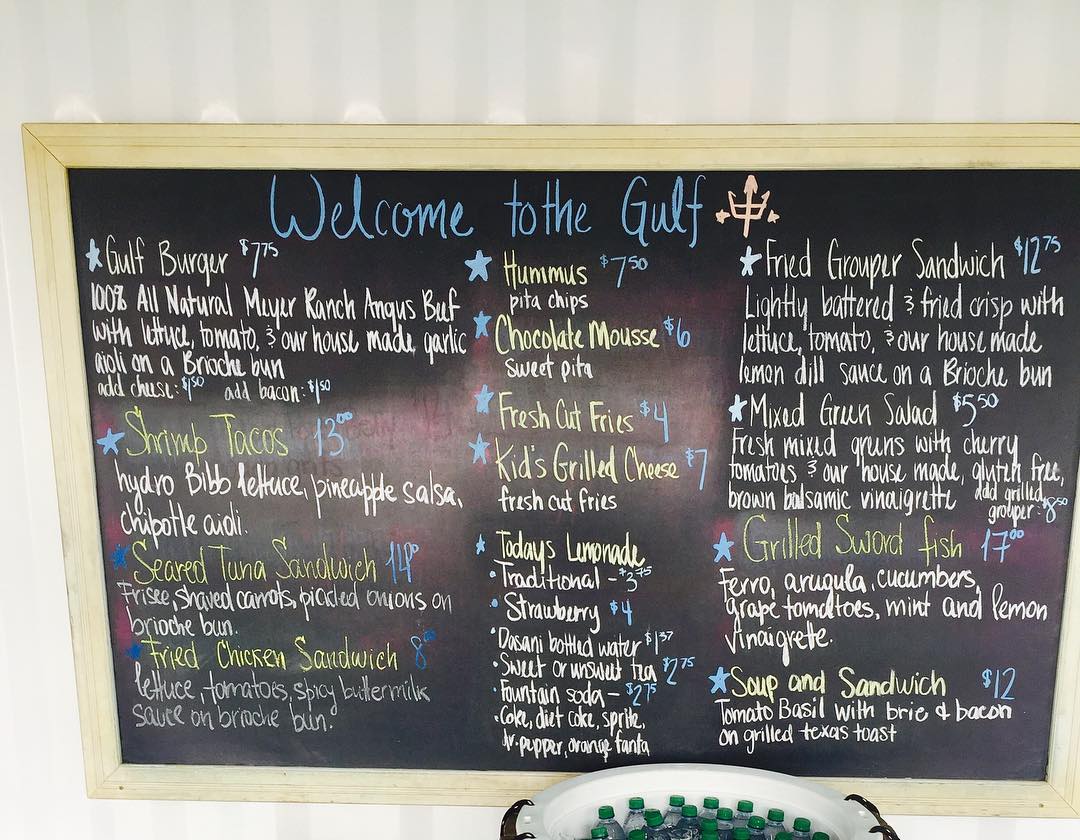 Welcome to the Gulf
Gulf Burger $7.75
100% All Natural Meyer Ranch Angus Beef
with lettuce, tomato, & our house made garlic
aioli on a Brioche bun
add cheese: $1.50 add bacon: $1.50
Shrimp Tacos 13.00
hydro Bibb lettuce, pineapple salsa,
chipotle aioli.
Seared Tuna Sandwich 14.00
Frisee, shaved carrots, pickled onions on
brioche bun.
Fried Chicken Sandwich 8.00
lettuce, tomatoes, spicy buttermilk
sauce on brioche bun.
Hummus $7.50
pita chips
Chocolate Mousse $6
Sweet pita
Fresh Cut Fries $4
Kid's Grilled Cheese $7
fresh cut fries
Todays Lemonade
Traditional - $3.75
Strawberry $4
Dasani bottled water $1.37
Sweet or unsweet tea $2.75
Fountain soda - $2.75
Coke, diet coke, sprite,
dr. pepper, orange fanta
Fried Grouper Sandwich $12.75
Lightly battered & fried crisp with
lettuce, tomato, & our house made
lemon dill sauce on a Brioche bun
Mixed Green Salad $5.50
Fresh mixed greens with cherry
tomatoes & our house made, gluten free,
brown balsamic vinaigrette add grilled
grouper: $8.50
Grilled Sword fish 17.00
Ferro, arugula, cucumbers,
grape tomatoes, mint and lemon
vinaigrette.
Soup and Sandwich $12
Tomato Basil with brie & bacon
on grilled texas toast